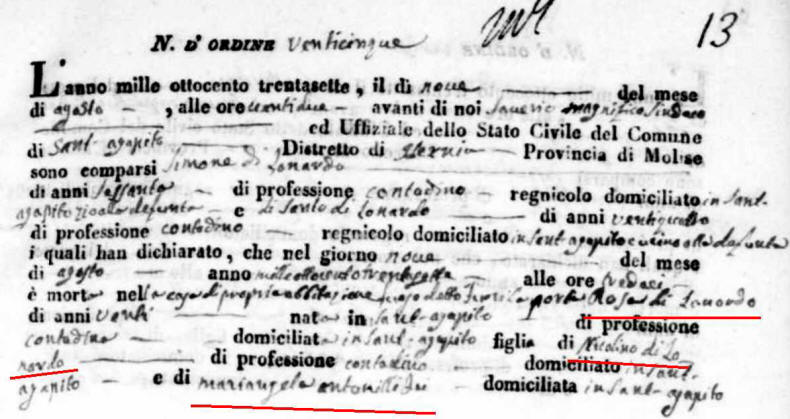 13
N. D'ORDINE venticinque
L'anno mille ottocento trentasette, il dì nove del mese
di agosto, alle ore ventidue avanti di noi Saverio magnifico Sindaco
ed Uffiziale dello Stato Civile del Comune
di Sant-agapito Distretto di Isernia Provincia di Molise
sono comparsi Simone di Lonardo
di anni Sessanta di professione contadino regnicolo domiciliato in Sant-
agapito zio alla defunta e di Santo di Lonardo di anni ventiquattro
di professione contadino regnicolo domiciliato in Sant-agapito cugino alla defunta
i quali han dichiarato, che nel giorno nove del mese
di agosto anno mille ottocento trentasette alle ore tredaci
è morta nella casa di propria abbitazione porta Rosa di Lonardo
di anni venti nata in Sant-agapito di professione
contadina domiciliata in Sant-agapito figlia di Nicolino di Lo
nardo di professione contadino domiciliato in Sant-
agapito e di mariangela antonilli domiciliata in Sant-agapito